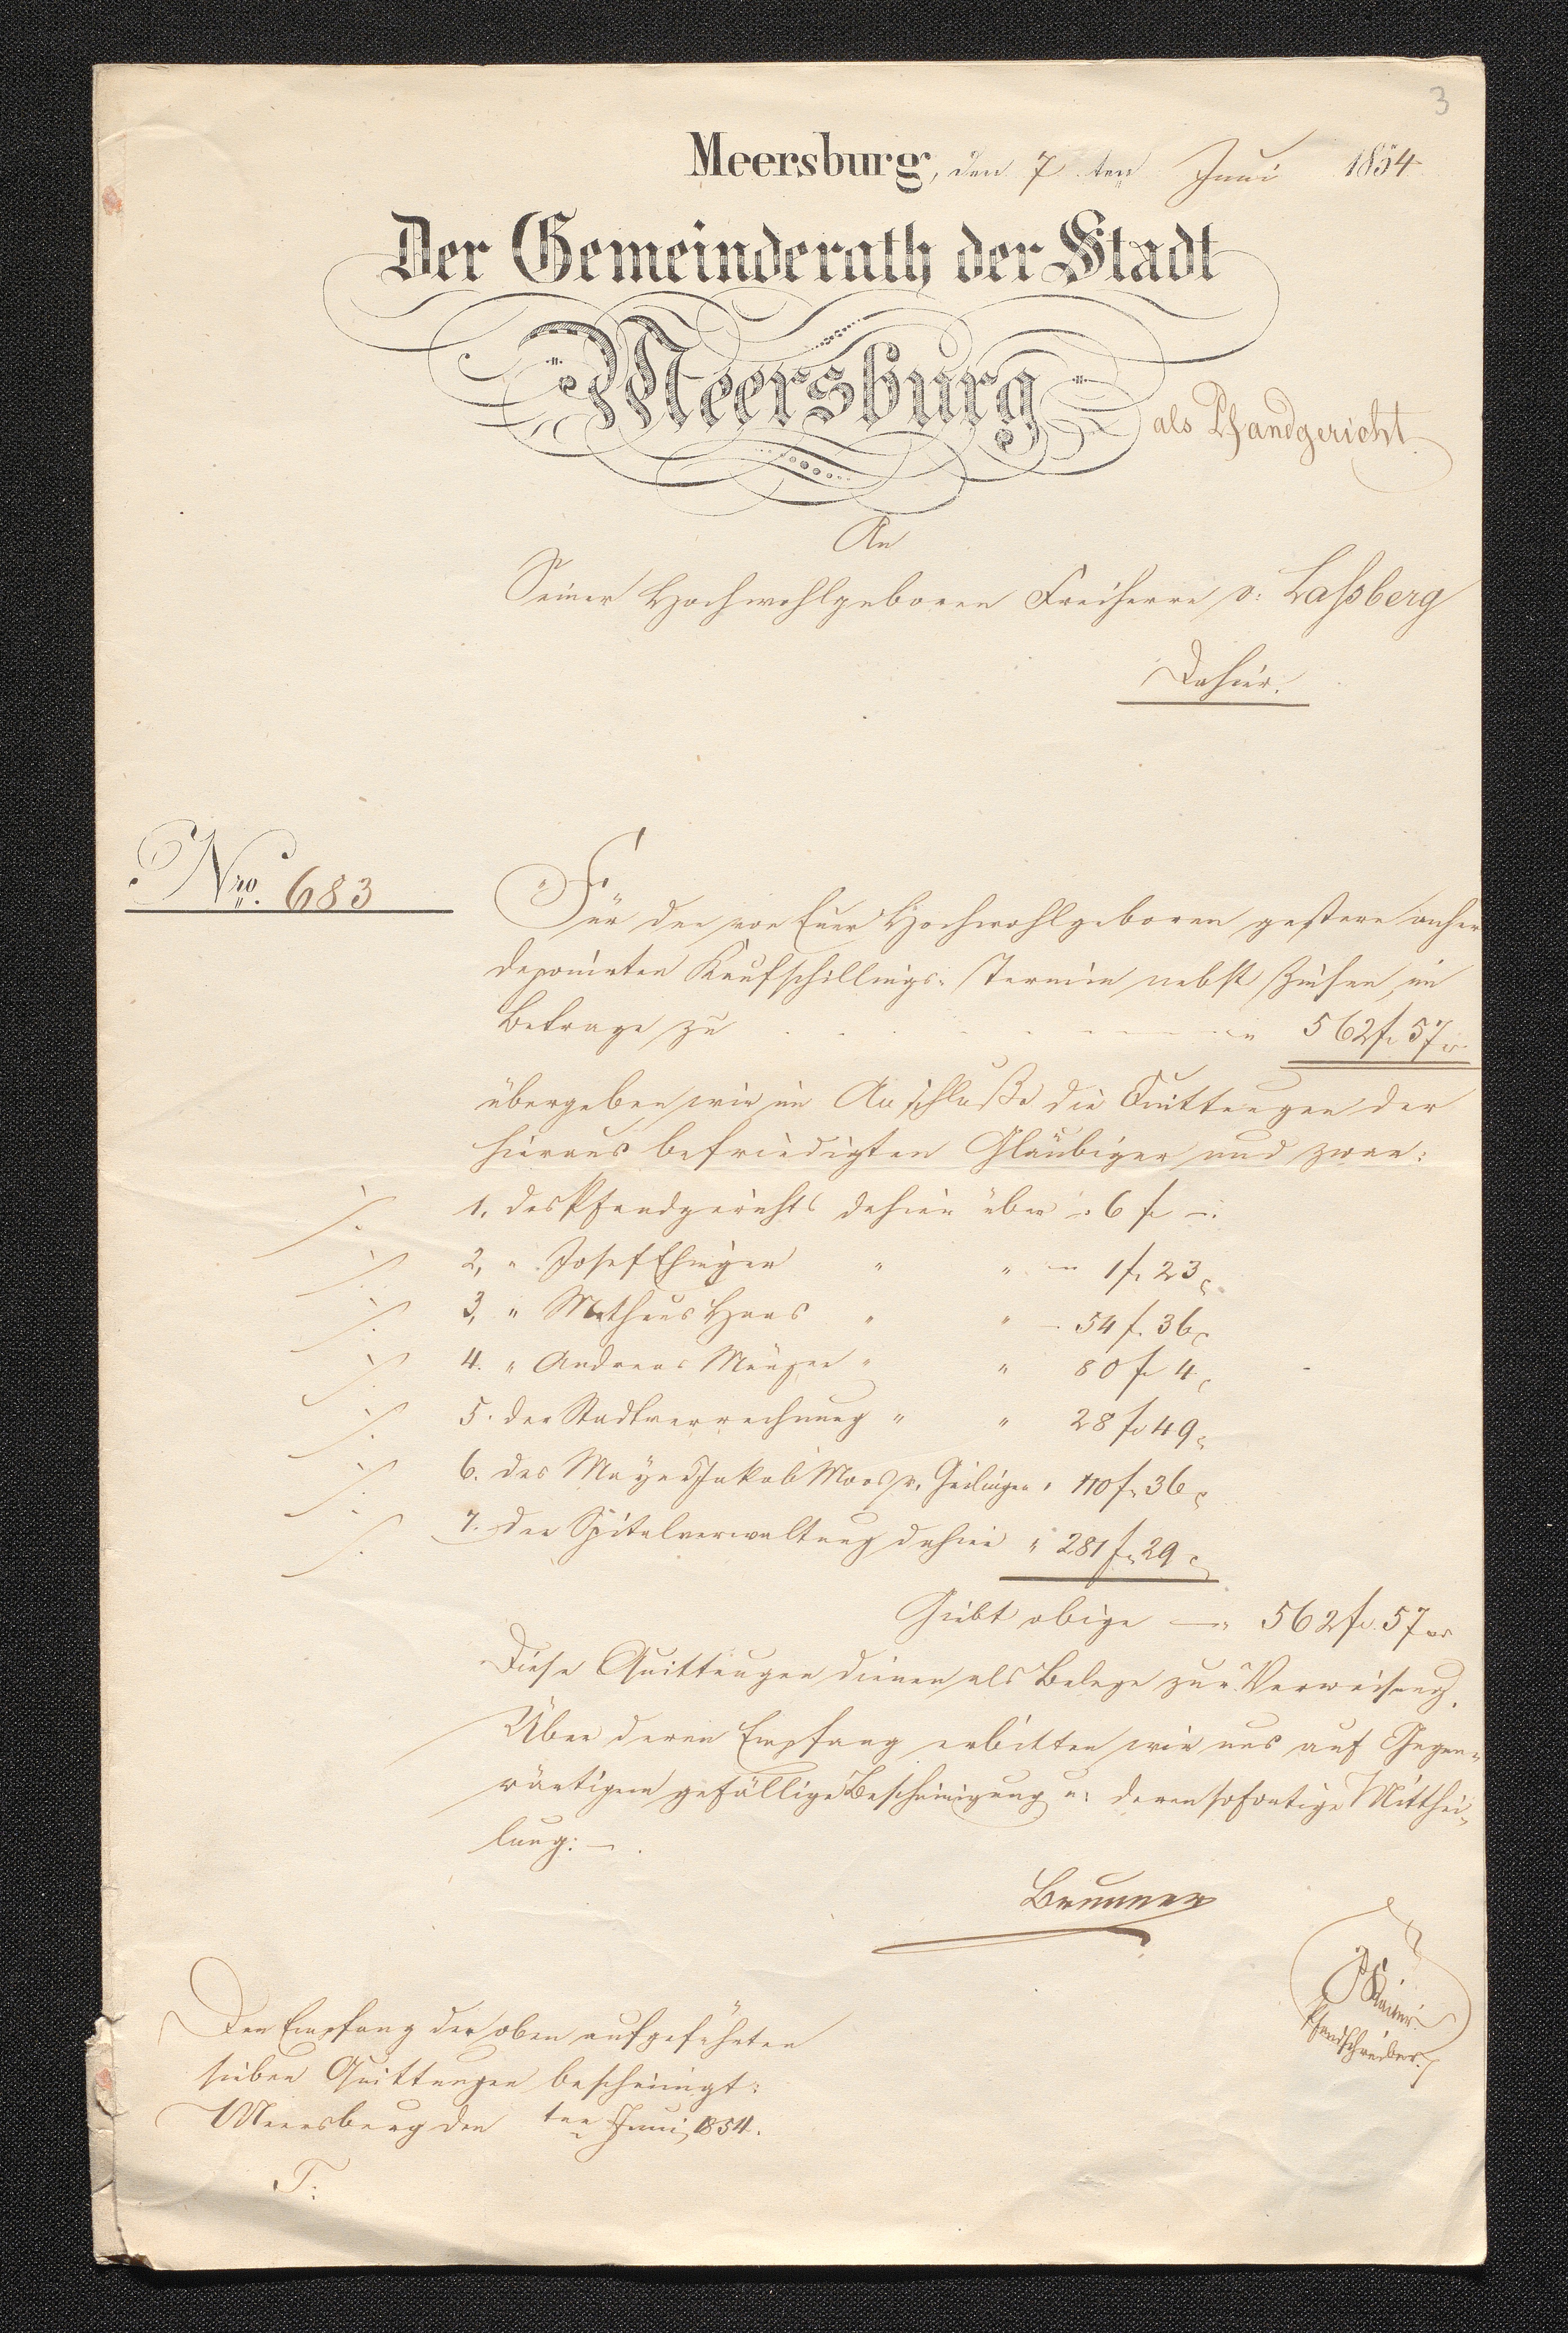 3
Meersburg, den 7ten Juni 1854
Der Gemeinderath der Stadt
Meersburg
als Pfandgericht
An
Seiner Hochwohlgeboren Freiherrn v: Laßberg
Dahier.
Nro. 683
Für den von Euer Hochwohlgeboren gestern anher
deponirten Kaufschillings-Termin nebst Zinsen, im
Betrage zu 562 f 57 xr
übergeben wir im Anschluße die Quittungen der
hieraus befriedigten Gläubiger und zwar:
1. des Pfandgerichts dahier über 6 f —
2, " Josef Ehinger " " 1 f 23
3, " Matheus Haas " " 54 f. 36
4. " Andreas " " 80 f 4
5. der Stadtverrechnung " " 28 f 49
6. des Mayer Jakob Moos v. Geilingen " 110 f 36
7. der Spitalverwaltung dahier " 281 f 29
Giebt obige — 562 f. 57 xr
Diese Quittungen dienen als Belege zur Verweisung.
Über deren Empfang erbitten wir uns auf Gegen-
wärtigem gefällige Bescheinigung u: deren sofortige Mitthei-
lung: —.
Brunner
Pfandschreiber.
Den Empfang der oben aufgeführten
sieben Quittungen bescheinigt:
Meersburg den ten Juni 1854.
T: